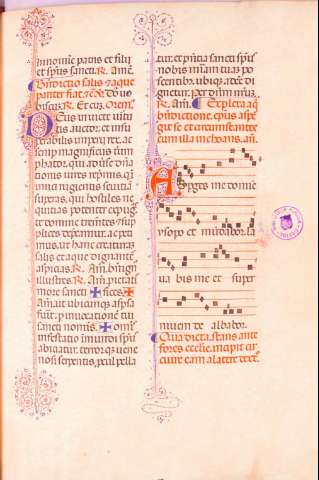 innomine patris et filii
et spūs sancti. ℟. Amē.
Bñdictio salis et aque
pariter fiat. ℣. Dñs vo
biscuz. ℟. Et cuz. Orem⁹.
Deus invicte virtu
tis auctor et insu
perabilis imperij rex. ac
semp magnificus trium
phator. qui adùse dña
tionis vires reprimis. qui
inimici rugientis seuitiā
superas. qui hostiles ne
quitias potenter expug
te domine
plices deprecamur. ac peti
mus. ut hanc creaturaz
salis et aque dignant
aspicias. ℟. Am. benign⁹
illustres. ℟. Am. pietatis
more sancti ✠ fices. ℟.
Am. ut ubicumqz aspsa
fuerit. p inuocationem tui
sancti nominis. ✠ omīs
infestatio inmundi spūs
abigatur. terrorqz vene
nosi serpentis. pcul pella
tur. et pñtia sancti spūs
nobis miam tuaz pos
centibuz. ubiqz adeē di
gnetur. per dñm nr̄uz.
℟. Am. Expleta aq̄
bñdictione. ep̄us asper
git se et circumstantes
cum illa inchoans. añ.
Asperges me domine
ysopo et mundabor. la
ua bis me et super
niuem de albabor.
Qua dicta. stans ante
fores ecclīe. incipit cir
cuire eam a latere dext̄.